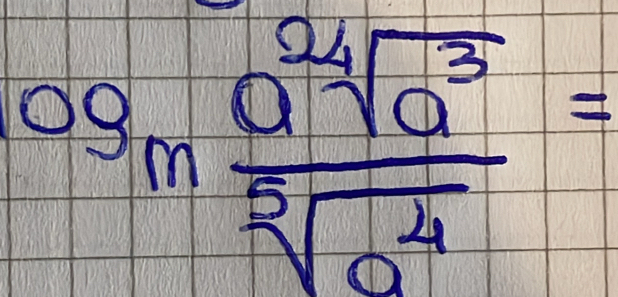 log_m \frac{a^2 \sqrt[4]{a^3}}{\sqrt[5]{a^4}} =